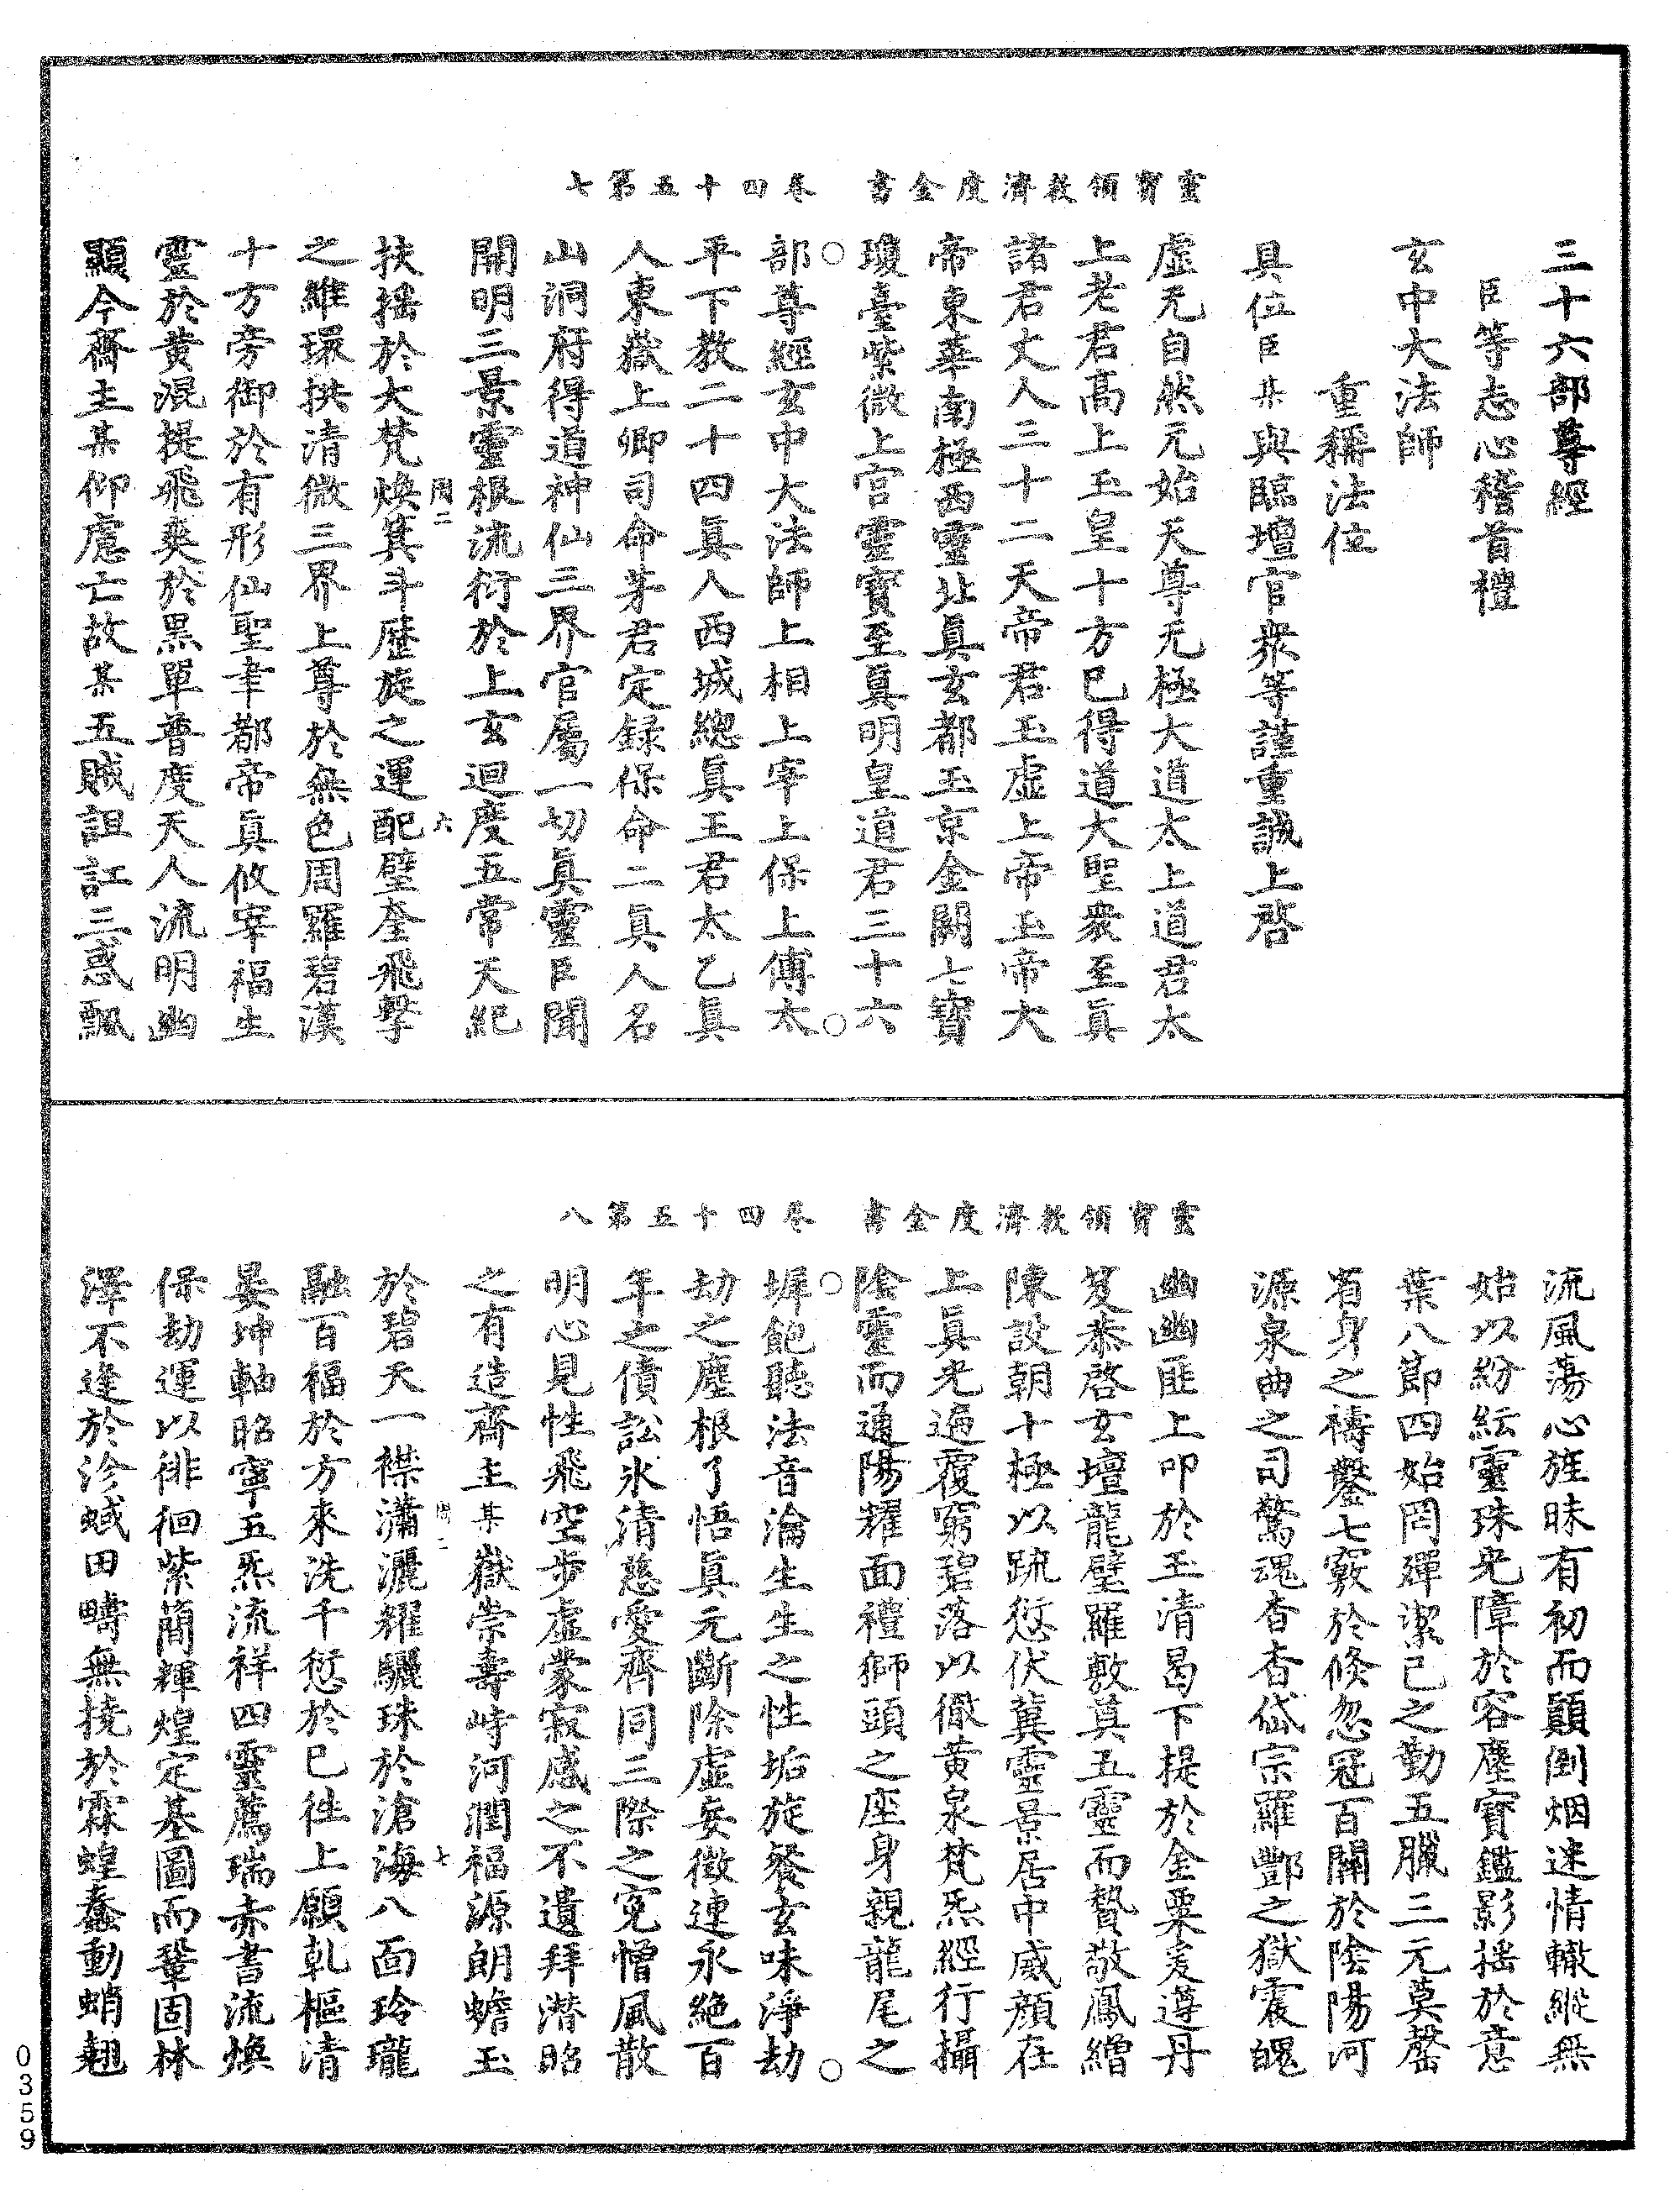 靈寶領教濟度金書 卷四十五第七
三十六部尊經
臣等志心稽首禮
玄中大法師
重稱法位
具位臣某與臨壇官衆等謹重誠上啓
虛无自然元始天尊无極大道太上道君太
上老君高上玉皇十方已得道大聖衆至真
諸君丈人三十二天帝君玉虛上帝玉帝大
帝東華南極西靈北真玄都玉京金闕七寶
瓊臺紫微上宮靈寶至真明皇道君三十六
部尊經玄中大法師上相上宰上保上傅太
平下教二十四真人西城總真王君太乙真
人東嶽上卿司命茅君定録保命二真人名
山洞府得道神仙三界官屬一切真靈臣聞
開明三景靈根流衍於上玄迴度五常天紀
扶搖於大梵煥箕斗歷旋之運配璧奎飛擊
之維環拱清微三界上尊於無色周羅碧漢
十方旁御於有形仙聖聿都帝真攸宰福生
靈於黄混提飛爽於黑單普度天人流明幽
顯今齋主某仰慮亡故某五賊詛訌三惑飄
開二 六
靈寶領教濟度金書 卷四十五第八
流風蕩心旌昧有初而顛倒烟迷情轍縱無
始以紛紜靈珠光障於容塵寶鑑影搖於意
葉八節四始罔殫潔己之勤五臘三元莫罄
省身之禱鑿七竅於倏忽冠百關於陰陽河
源泉曲之司驚魂杳杳岱宗羅酆之獄震魄
幽幽匪上叩於玉清曷下提於金粟爰遵丹
笈恭啓玄壇龍璧羅敷萁五靈而贄敬鳳繒
陳設朝十極以疏愆伏冀靈景居中威顔在
上真光遍覆窮碧落以徹黄泉梵炁經行攝
陰靈而通陽耀面禮獅頭之座身親龍尾之
墀飽聽法音淪生生之性垢旋餐玄味淨劫
劫之塵根了悟真元斷除虛妄徵連永絶百
年之債訟氷清慈愛齊同三際之寃憎風散
明心見性飛空步虛蒙寂感之不遺拜潜昭
之有造齋主某嶽崇壽峙河潤福源朗蟾玉
於碧天一襟瀟灑耀驪珠於滄海八面玲瓏
融百福於方來洗千愆於已往上願乹樞清
晏坤軸昭寧五炁流祥四靈薦瑞赤書流煥
保劫運以徘徊紫簡輝煌定基圖而鞏固林
澤不逢於沴蜮田疇無撓於霖蝗蠢動蛸翹
開二 七
0359